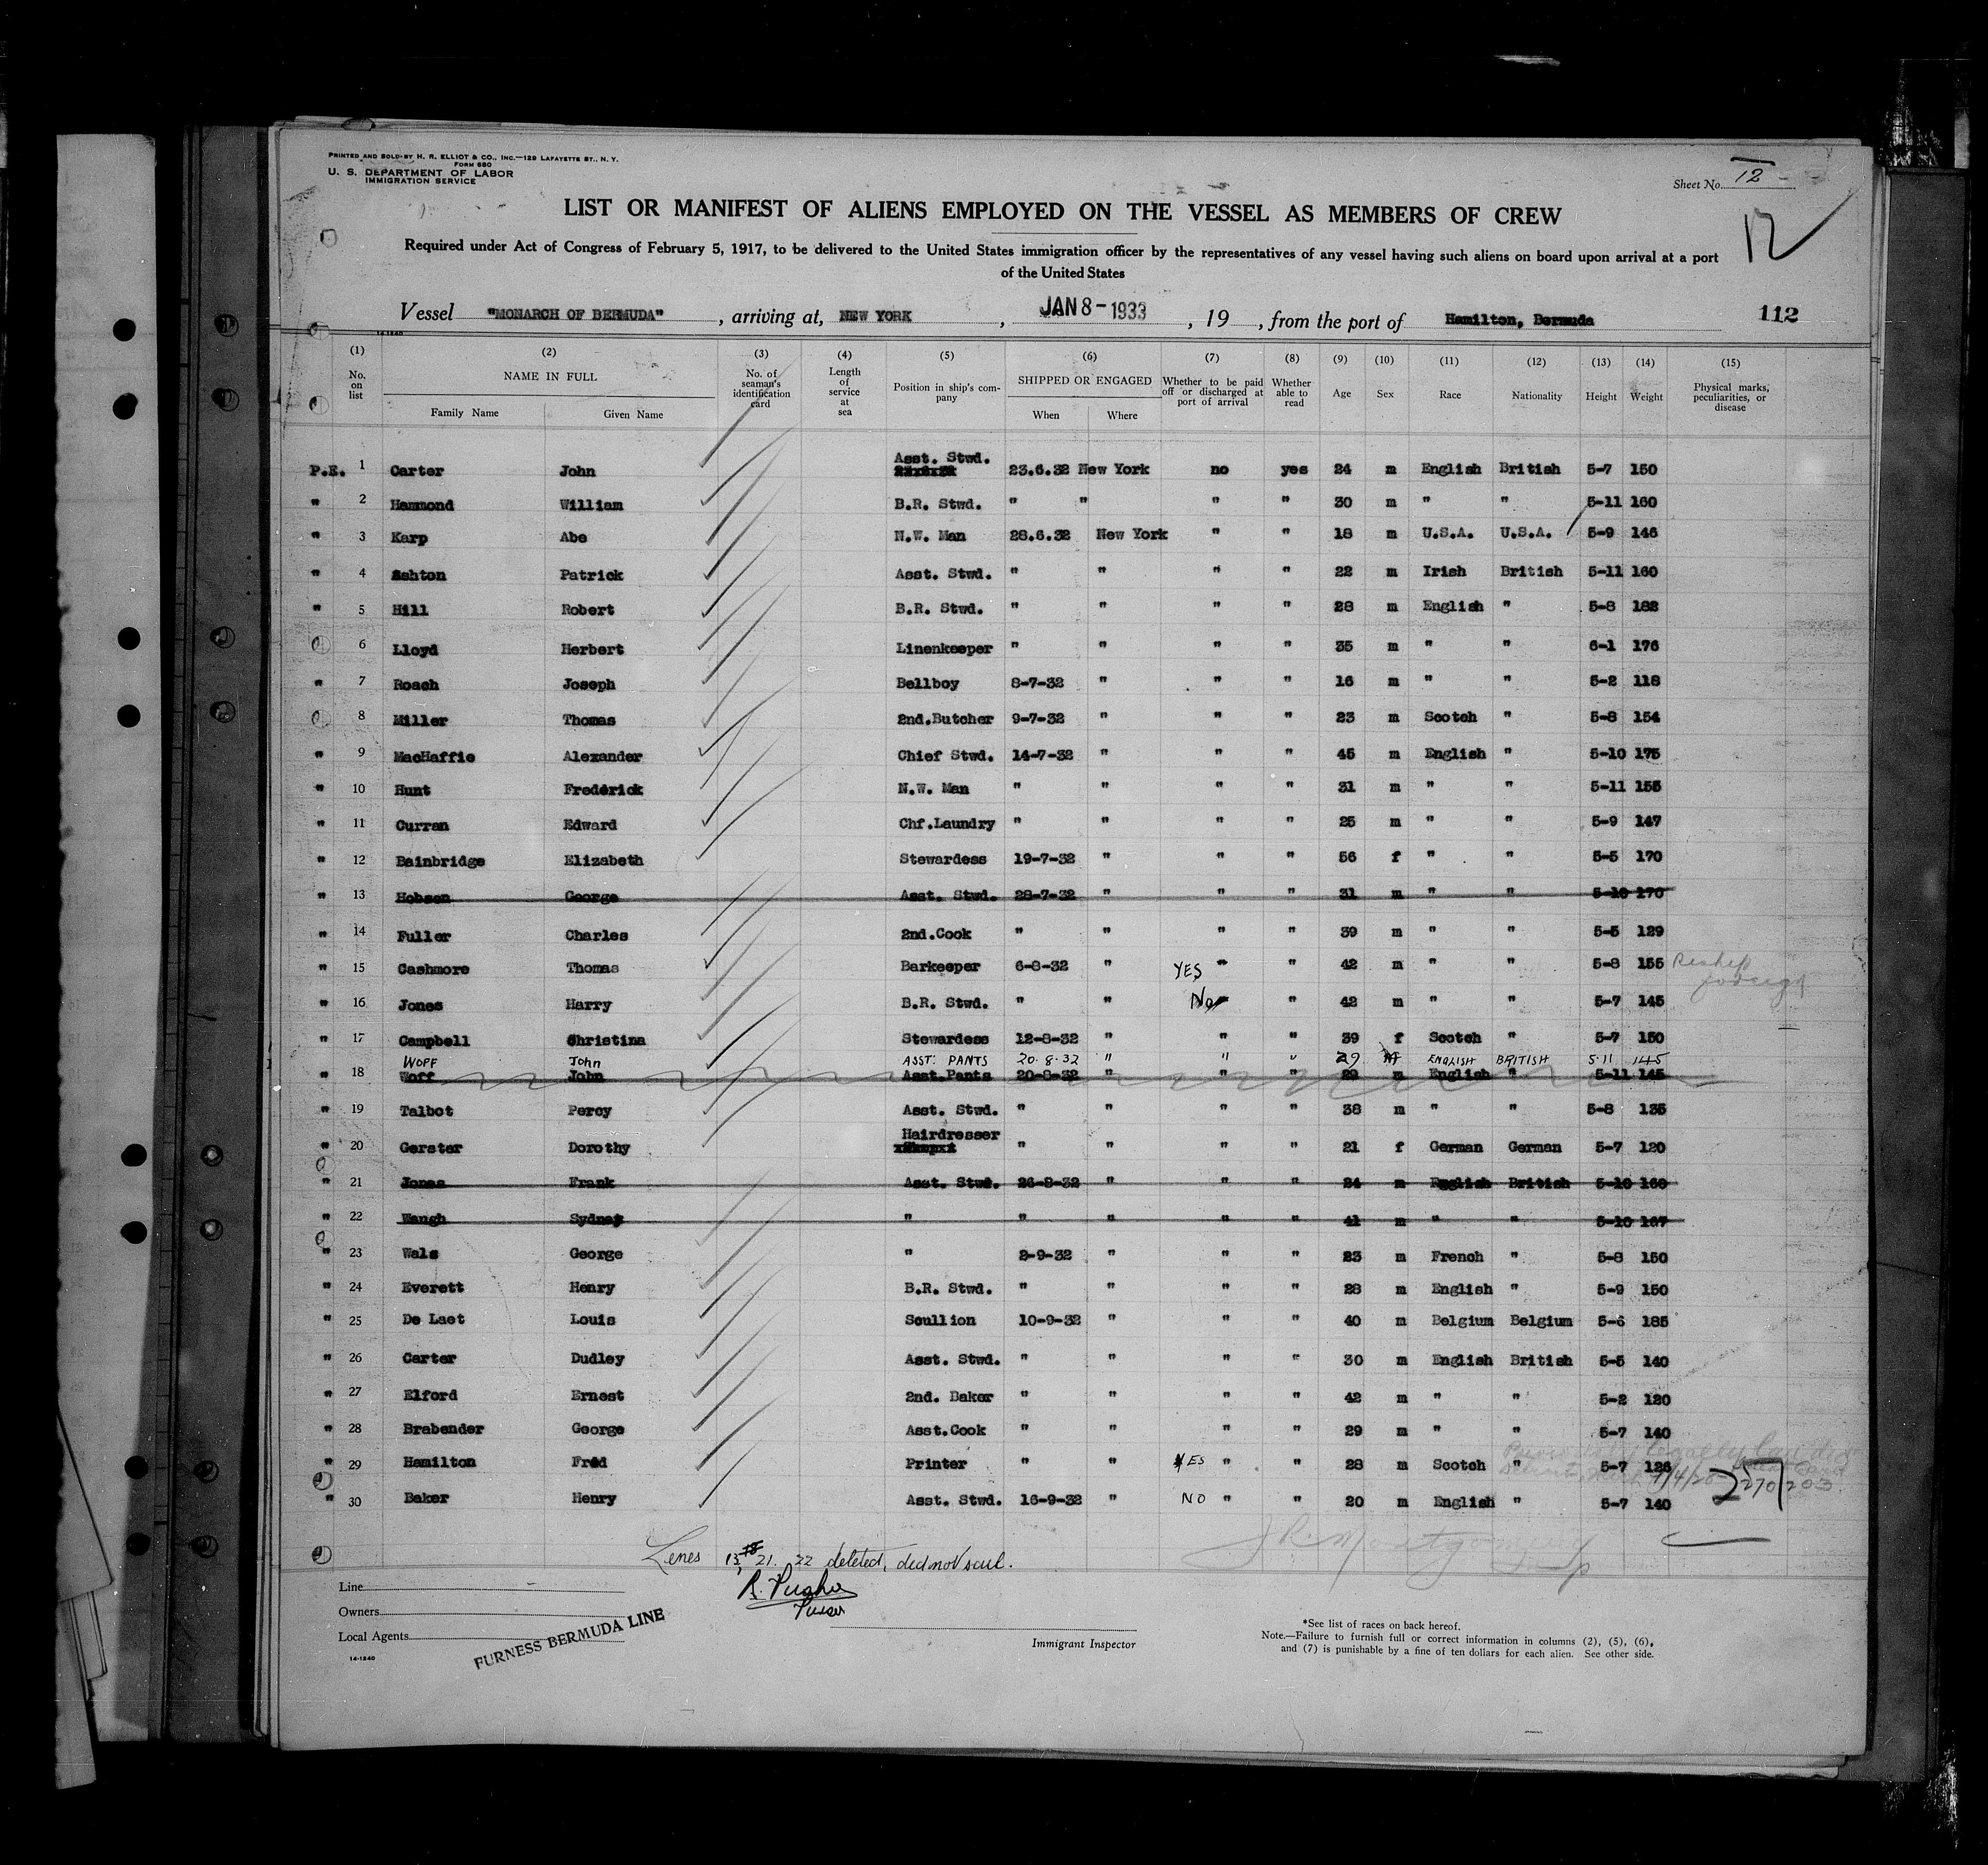 PRINTED AND SOLD BY H. R. ELLIOT & CO., INC.—129 LAFAYETTE ST., N. Y.
FORM 680
U. S. DEPARTMENT OF LABOR
IMMIGRATION SERVICE
Sheet No. 12
LIST OR MANIFEST OF ALIENS EMPLOYED ON THE VESSEL AS MEMBERS OF CREW
12
Required under Act of Congress of February 5, 1917, to be delivered to the United States immigration officer by the representatives of any vessel having such aliens on board upon arrival at a port
of the United States
Vessel "MONARCH OF BERMUDA", arriving at, NEW YORK, JAN 8-1933, 19, from the port of Hamilton, Bermuda 112
14-1240
(1) (2) (3) (4) (5) (6) (7) (8) (9) (10) (11) (12) (13) (14) (15)
No. on list NAME IN FULL No. of seaman's identification card Length of service at sea Position in ship's company SHIPPED OR ENGAGED Whether to be paid off or discharged at port of arrival Whether able to read Age Sex Race Nationality Height Weight Physical marks, peculiarities, or disease
Family Name Given Name When Where
P.E. 1 Carter John Asst. Stwd. 23.6.32 New York no yes 24 m English British 5-7 150
" 2 Hammond William B.R. Stwd. " " " " 30 m " " 5-11 160
" 3 Karp Abe N.W. Man 28.6.32 New York " " 18 m U.S.A. U.S.A. 5-9 146
" 4 Ashton Patrick Asst. Stwd. " " " " 22 m Irish British 5-11 160
" 5 Hill Robert B.R. Stwd. " " " " 28 m English " 5-8 182
6 Lloyd Herbert Linenkeeper " " " " 35 m " " 6-1 176
" 7 Roach Joseph Bellboy 8-7-32 " " " 16 m " " 5-2 118
8 Miller Thomas 2nd.Butcher 9-7-32 " " " 23 m Scotch " 5-8 154
" 9 MacHaffie Alexander Chief Stwd. 14-7-32 " " " 45 m English " 5-10 175
" 10 Hunt Frederick N.W. Man " " " " 31 m " " 5-11 155
" 11 Curran Edward Chf.Laundry " " " " 25 m " " 5-9 147
" 12 Bainbridge Elizabeth Stewardess 19-7-32 " " " 56 f " " 5-5 170
" 13 Hobson George Asst. Stwd. 28-7-32 " " " 31 m " " 5-10 170
" 14 Fuller Charles 2nd.Cook " " " " 39 m " " 5-5 129
" 15 Cashmore Thomas Barkeeper 6-8-32 " YES " " 42 m " " 5-8 155 Reship foreign
" 16 Jones Harry B.R. Stwd. " " No " 42 m " " 5-7 145
" 17 Campbell Christina Stewardess 12-8-32 " " " 39 f Scotch " 5-7 150
WOFF John ASST. PANTS 20.8.32 " " " 29 M ENGLISH BRITISH 5.11 145
" 18 Woff John Asst.Pants 20-8-32 " " " 29 m English " 5-11 145
" 19 Talbot Percy Asst. Stwd. " " " " 38 m " " 5-8 135
" 20 Gerster Dorothy Hairdresser " " " " 21 f German German 5-7 120
" 21 Jones Frank Asst. Stwd. 26-8-32 " " " 24 m English British 5-10 160
" 22 Waugh Sydney " " " " " 41 m " " 5-10 167
" 23 Wals George " 2-9-32 " " " 23 m French " 5-8 150
" 24 Everett Henry B.R. Stwd. " " " " 28 m English " 5-9 150
" 25 De Laet Louis Scullion 10-9-32 " " " 40 m Belgium Belgium 5-6 185
" 26 Carter Dudley Asst. Stwd. " " " " 30 m English British 5-5 140
" 27 Elford Ernest 2nd. Baker " " " " 42 m " " 5-2 120
" 28 Brabender George Asst.Cook " " " " 29 m " " 5-7 140
" 29 Hamilton Fred Printer " " YES " " 28 m Scotch " 5-7 126
" 30 Baker Henry Asst. Stwd. 16-9-32 " NO " " 20 m English " 5-7 140
Lines 13, 18 21. 22 deleted, did not sail.
R. Pugh
Purser
Line
Owners
Local Agents
FURNESS BERMUDA LINE
14-1240
Immigrant Inspector
*See list of races on back hereof.
Note.—Failure to furnish full or correct information in columns (2), (5), (6),
and (7) is punishable by a fine of ten dollars for each alien. See other side.